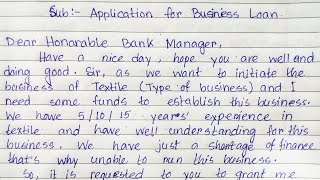 Sub:- Application for Business Loan.
Dear Honorable Bank Manager,
Have a nice day, hope you are well and
doing good. Sir, as we want to initiate the
business of Textile (Type of business) and I
need some funds to establish this business.
We have 5/10/15 years' experience in
textile and have well understanding for this
business. We have just a shortage of finance
that's why unable to run this business.
So, it is requested to you to grant me